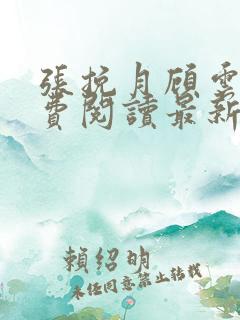 張挽月顧雲
費閱讀最新
賴紹明
未經同意禁止轉載